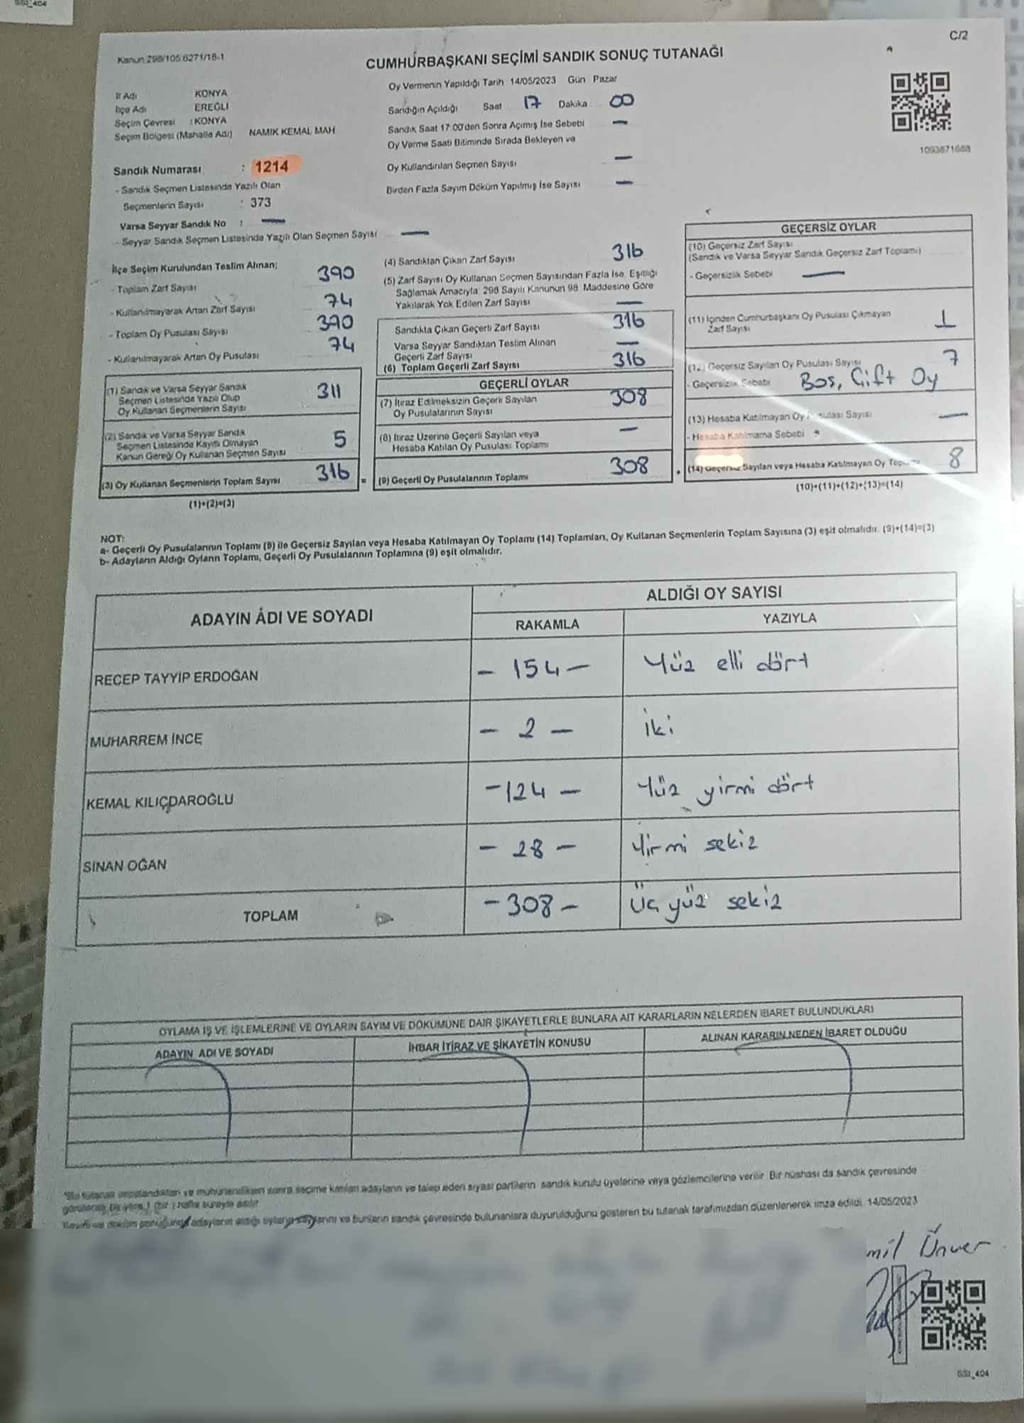 SSI_404
C/2
Kanun 298/105 6271/18-1
CUMHURBAŞKANI SEÇİMİ SANDIK SONUÇ TUTANAĞI
Oy Vermenin Yapıldığı Tarih 14/05/2023 Gün Pazar
İl Adı KONYA
İlçe Adı EREĞLİ
Seçim Çevresi : KONYA
Seçim Bölgesi (Mahalle Adı) NAMIK KEMAL MAH
Sandığın Açıldığı Saat 17 Dakika 00
Sandık Saat 17:00'den Sonra Açımış İse Sebebi —
Oy Verme Saati Bitiminde Sırada Bekleyen ve
Oy Kullandırılan Seçmen Sayısı —
Birden Fazla Sayım Döküm Yapılmış İse Sayısı —
1093871688
Sandık Numarası : 1214
- Sandık Seçmen Listesinde Yazılı Olan
Seçmenlerin Sayısı : 373
Varsa Seyyar Sandık No : —
- Seyyar Sandık Seçmen Listesinde Yazılı Olan Seçmen Sayısı —
İlçe Seçim Kurulundan Teslim Alınan;
- Toplam Zarf Sayısı 390
- Kullanılmayarak Artan Zarf Sayısı 74
- Toplam Oy Pusulası Sayısı 390
- Kullanılmayarak Artan Oy Pusulası 74
(1) Sandık ve Varsa Seyyar Sandık
Seçmen Listesinde Yazılı Olup
Oy Kullanan Seçmenlerin Sayısı 311
(2) Sandık ve Varsa Seyyar Sandık
Seçmen Listesinde Kayıtlı Olmayan
Kanun Gereği Oy Kullanan Seçmen Sayısı 5
(3) Oy Kullanan Seçmenlerin Toplam Sayısı 316 =
(1)+(2)=(3)
(4) Sandıktan Çıkan Zarf Sayısı 316
(5) Zarf Sayısı Oy Kullanan Seçmen Sayısından Fazla İse, Eşitliği
Sağlamak Amacıyla 298 Sayılı Kanunun 98. Maddesine Göre
Yakılarak Yok Edilen Zarf Sayısı —
Sandıkta Çıkan Geçerli Zarf Sayısı 316
Varsa Seyyar Sandıktan Teslim Alınan
Geçerli Zarf Sayısı —
(6) Toplam Geçerli Zarf Sayısı 316
GEÇERLİ OYLAR
(7) İtiraz Edilmeksizin Geçerli Sayılan
Oy Pusulalarının Sayısı 308
(8) İtiraz Üzerine Geçerli Sayılan veya
Hesaba Katılan Oy Pusulası Toplamı —
(9) Geçerli Oy Pusulalarının Toplamı 308 +
GEÇERSİZ OYLAR
(10) Geçersiz Zarf Sayısı
(Sandık ve Varsa Seyyar Sandık Geçersiz Zarf Toplamı)
- Geçersizlik Sebebi —
(11) İçinden Cumhurbaşkanı Oy Pusulası Çıkmayan
Zarf Sayısı 1
Geçersiz Sayılan Oy Pusulası Sayısı 7
- Geçersizlik Sebebi Boş, Çift Oy
(13) Hesaba Katılmayan Oy Pusulası Sayısı —
- Hesaba Katılmama Sebebi
(14) Geçersiz Sayılan veya Hesaba Katılmayan Oy Toplamı 8
(10)+(11)+(12)+(13)=(14)
NOT:
a- Geçerli Oy Pusulalarının Toplamı (9) ile Geçersiz Sayılan veya Hesaba Katılmayan Oy Toplamı (14) Toplamları, Oy Kullanan Seçmenlerin Toplam Sayısına (3) eşit olmalıdır. (9)+(14)=(3)
b- Adayların Aldığı Oyların Toplamı, Geçerli Oy Pusulalarının Toplamına (9) eşit olmalıdır.
ADAYIN ADI VE SOYADI ALDIĞI OY SAYISI
RAKAMLA YAZIYLA
RECEP TAYYİP ERDOĞAN - 154 - Yüz elli dört
MUHARREM İNCE - 2 - İki
KEMAL KILIÇDAROĞLU - 124 - Yüz yirmi dört
SİNAN OĞAN - 28 - Yirmi sekiz
TOPLAM - 308 - Üç yüz sekiz
OYLAMA İŞ VE İŞLEMLERİNE VE OYLARIN SAYIM VE DÖKÜMÜNE DAİR ŞİKAYETLERLE BUNLARA AİT KARARLARIN NELERDEN İBARET BULUNDUKLARI
ADAYIN ADI VE SOYADI İHBAR İTİRAZ VE ŞİKAYETİN KONUSU ALINAN KARARIN NEDEN İBARET OLDUĞU
*Bu tutanak imzalandıktan ve mühürlendikten sonra seçime katılan adayların ve talep eden siyasi partilerin sandık kurulu üyelerine veya gözlemcilerine verilir. Bir nüshası da sandık çevresinde
görülecek bir yere 1 (bir) hafta süreyle asılır
adayların aldığı oyların sayılarını ve bunların sandık çevresinde bulunanlara duyurulduğunu gösteren bu tutanak tarafımızdan düzenlenerek imza edildi. 14/05/2023
mil Ünver
SSI_404